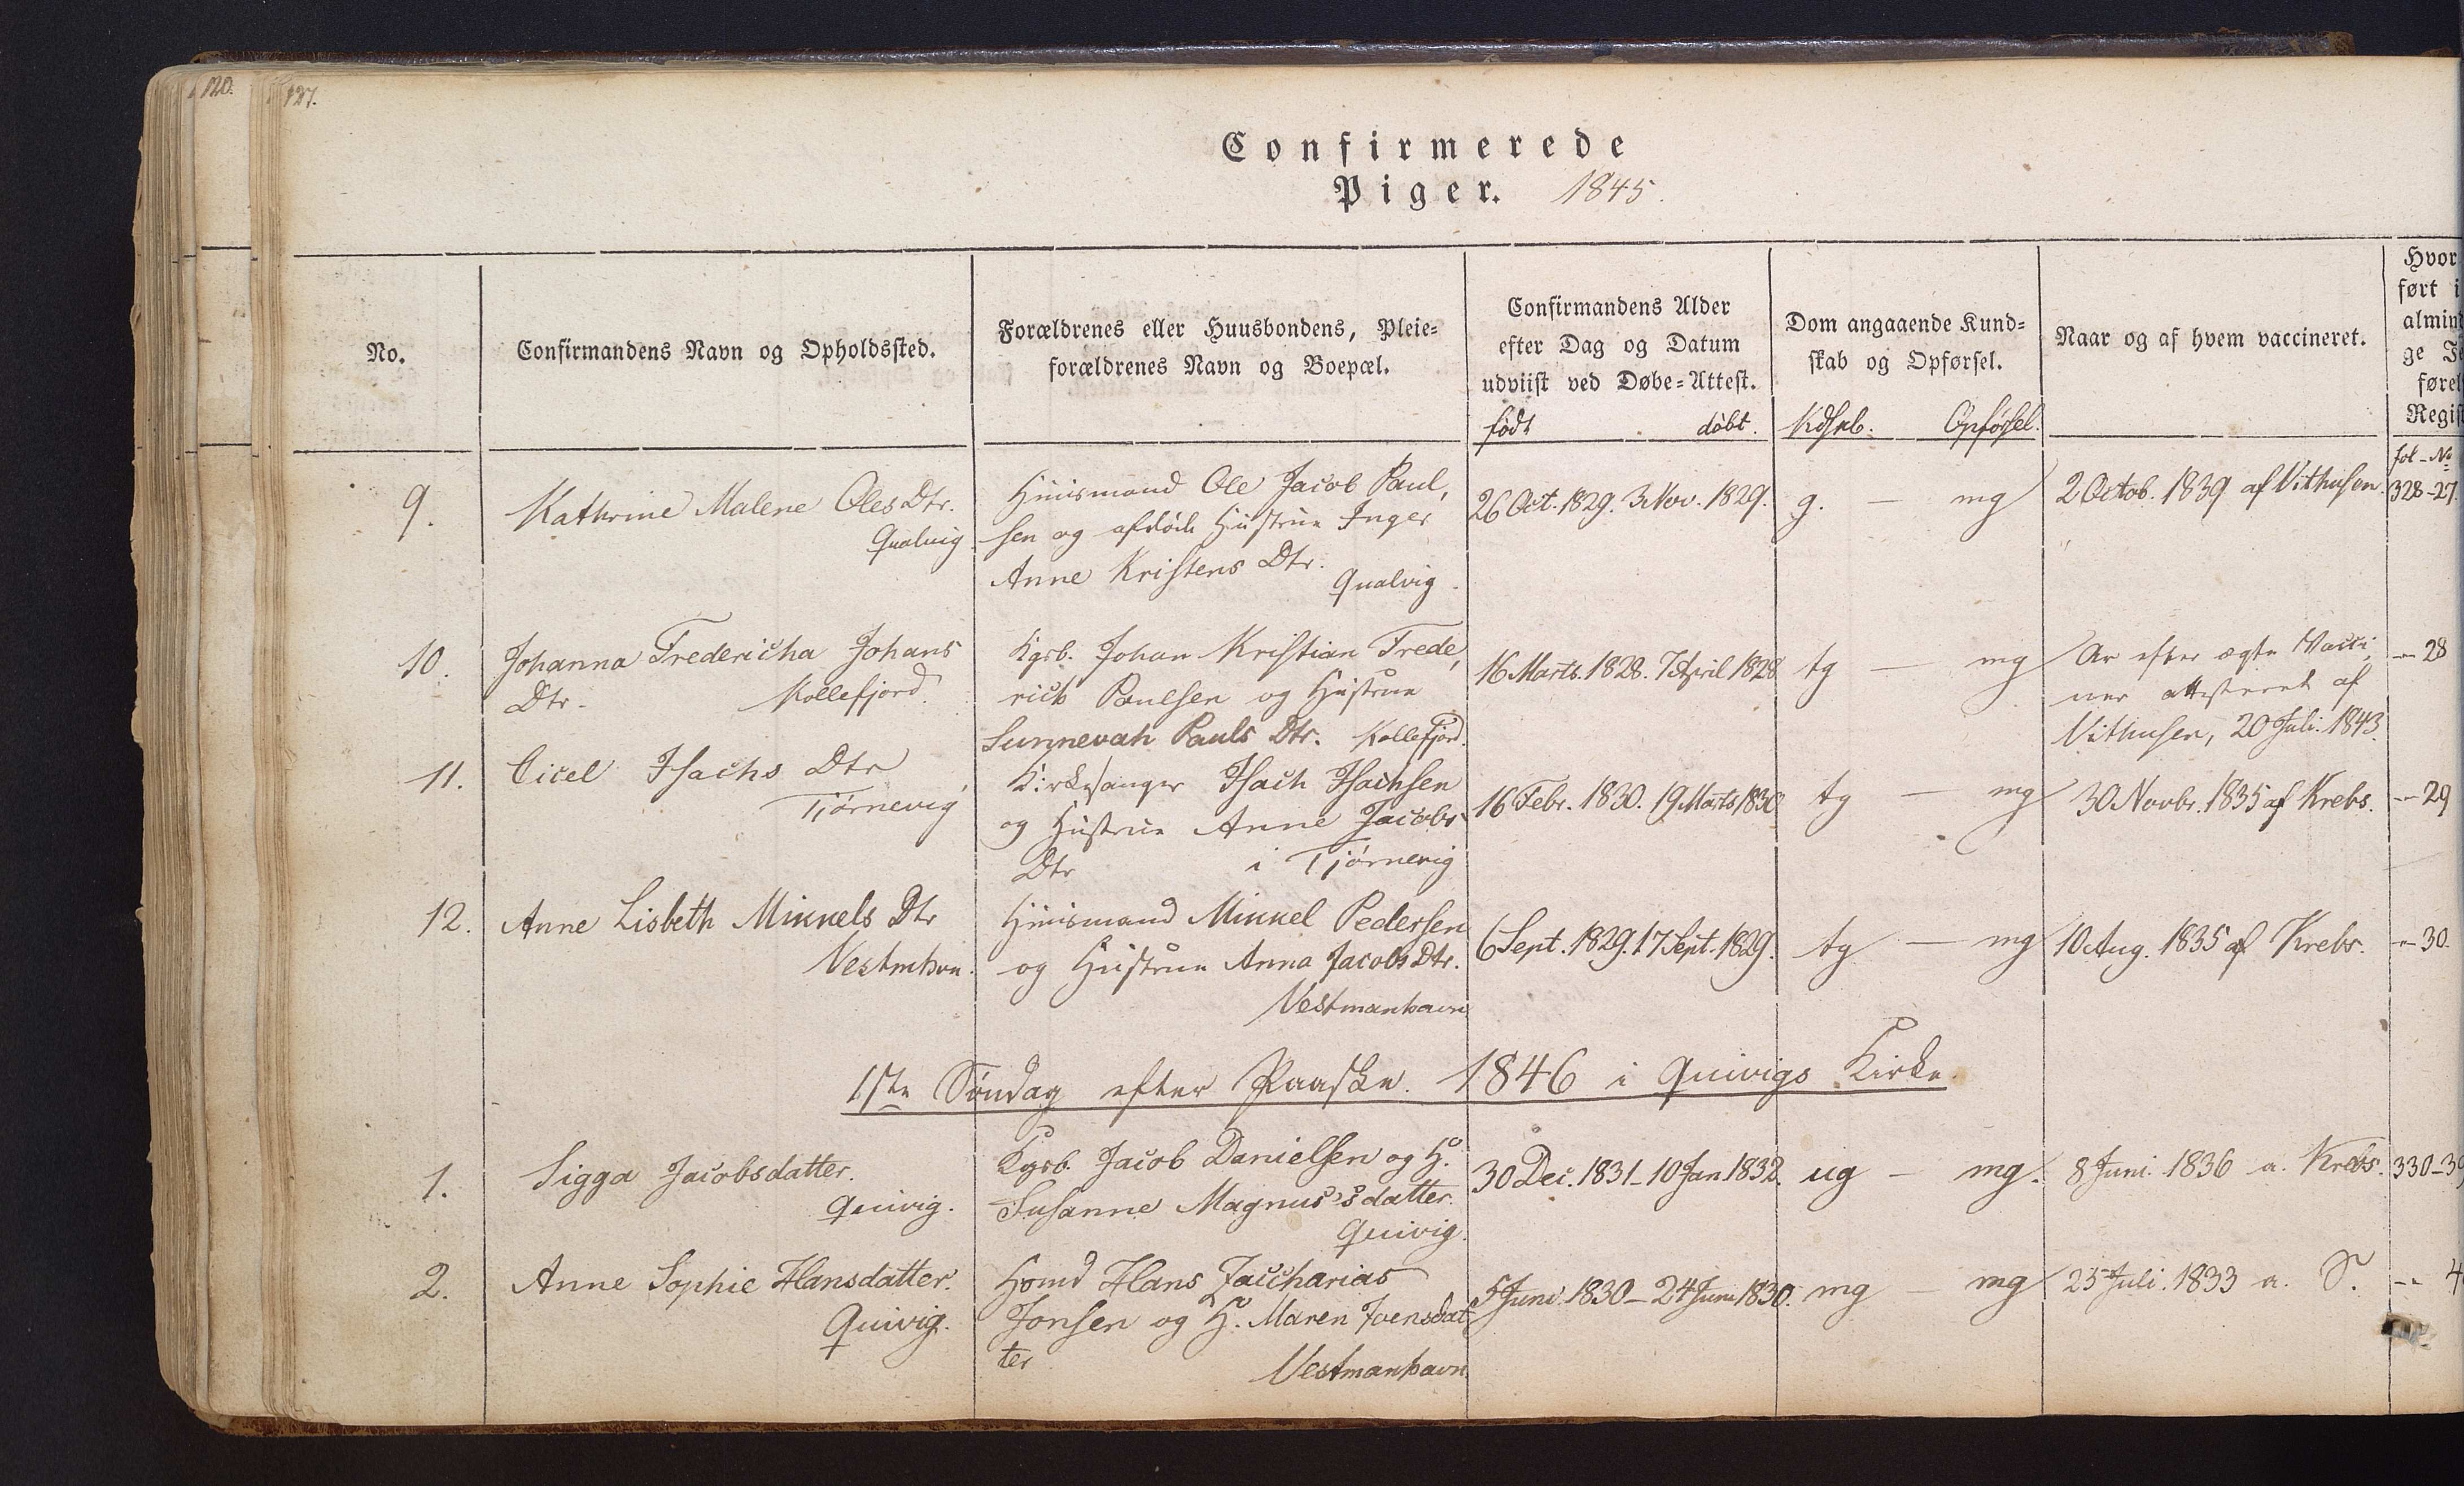 120.
127.
Confirmerede
Piger. 1845.
No.
Confirmandens Navn og Opholdssted.
Forældrenes eller Huusbondens, Pleie=
forældrenes Navn og Boepæl.
Confirmandens Alder
efter Dag og Datum
udviist ved Døbe=Attest.
født døbt.
Dom angaaende Kund=
skab og Opførsel.
Kdskb. Opførsel.
Naar og af hvem vaccineret.
Hvor
ført i
almind
ge
førel
Regist
fol - No
9.
Kathrine Malene OlesDtr.
Qualvig
Huusmand Ole Jacob Paul,
sen og afdøde Hustrue Inger
Anne Kristens Dtr.
Qualvig.
26 Oct. 1829. 3 Nov. 1829.
g. — mg
2 Octob. 1839 af Vithusen.
328-27.
10.
Johanna Fredericha Johans
Dtr. Kollefjord.
Kgsb. Johan Kristian Frede,
rich Poulsen og Hustrue
Sunnevah Pauls Dtr. Kollefjord.
16 Marts. 1828. 7 April 1828
tg — mg
Ar efter ægte Vacci,
ner attesteret af
Vithusen, 20 Juli. 1843.
-- 28
11.
Cicel Isachs Dtr
Tjørnevig
Kirkesanger Isach Isachsen
og Hustrue Anne Jacobs
Dtr i Tjørnevig
16 Febr. 1830. 19 Marts 1830
tg — mg
30 Novbr. 1835 af Krebs.
-- 29
12.
Anne Lisbeth Mikkels Dtr
Vestmhvn.
Huusmand Mikkel Pedersen
og Hustrue Anna Jacobs Dtr.
Vestmanhavn
6 Sept. 1829. 17 Sept. 1829.
tg — mg
10 Aug. 1835 af Krebs.
-- 30.
1ste Søndag efter Paaske. 1846 i Quivigs Kirke.
1.
Sigga Jacobsdatter.
Quivig.
Kgsb. Jacob Danielsen og H.
Susanne Magnus's datter.
Quivig.
30 Dec. 1831 - 10 Jan 1832.
ug — mg.
8 Juni 1836 a. Krebs.
330-39
2.
Anne Sophie Hansdatter.
Quivig.
Hsmd Hans Zaccharias
Jonsen og H. Maren Joensdat
ter
Vestmanhavn
5 Juni. 1830 - 24 Juni 1830.
mg — mg
25 Juli. 1833 a. S.
-- 4